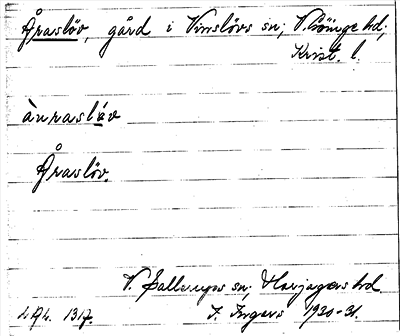 Åraslöv, gård i Vinslövs sn; V. Göinge hd;
Krist. l.
ànraslǻv
Åraslöv.
V. Sallerups sn; Harjagers hd.
I. Ingers 1930-31.